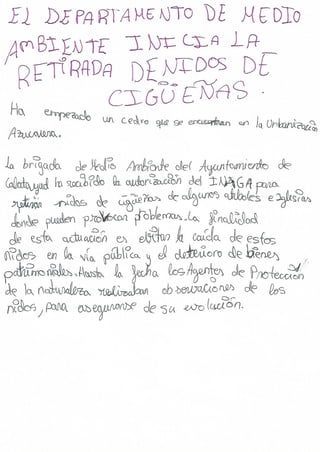 EL DEPARTAMENTO DE MEDIO
AMBIENTE INICIA LA
RETIRADA DE NIDOS DE
CIGÜEÑAS.
Ha empezado un cedro que se encuentran en la Urbanización
Azucarera.
La brigada de Medio Ambiente del Ayuntamiento de
Calatayud ha recibido la autorización del INAGA para
retirar nidos de cigüeñas de algunos árboles e iglesias
donde pueden provocar problemas. La finalidad
de esta actuación es evitar la caída de estos
nidos en la vía pública y el deterioro de bienes
patrimoniales. Hasta la fecha los Agentes de Protección
de la naturaleza realizaban observaciones de los
nidos, para asegurarse de su evolución.